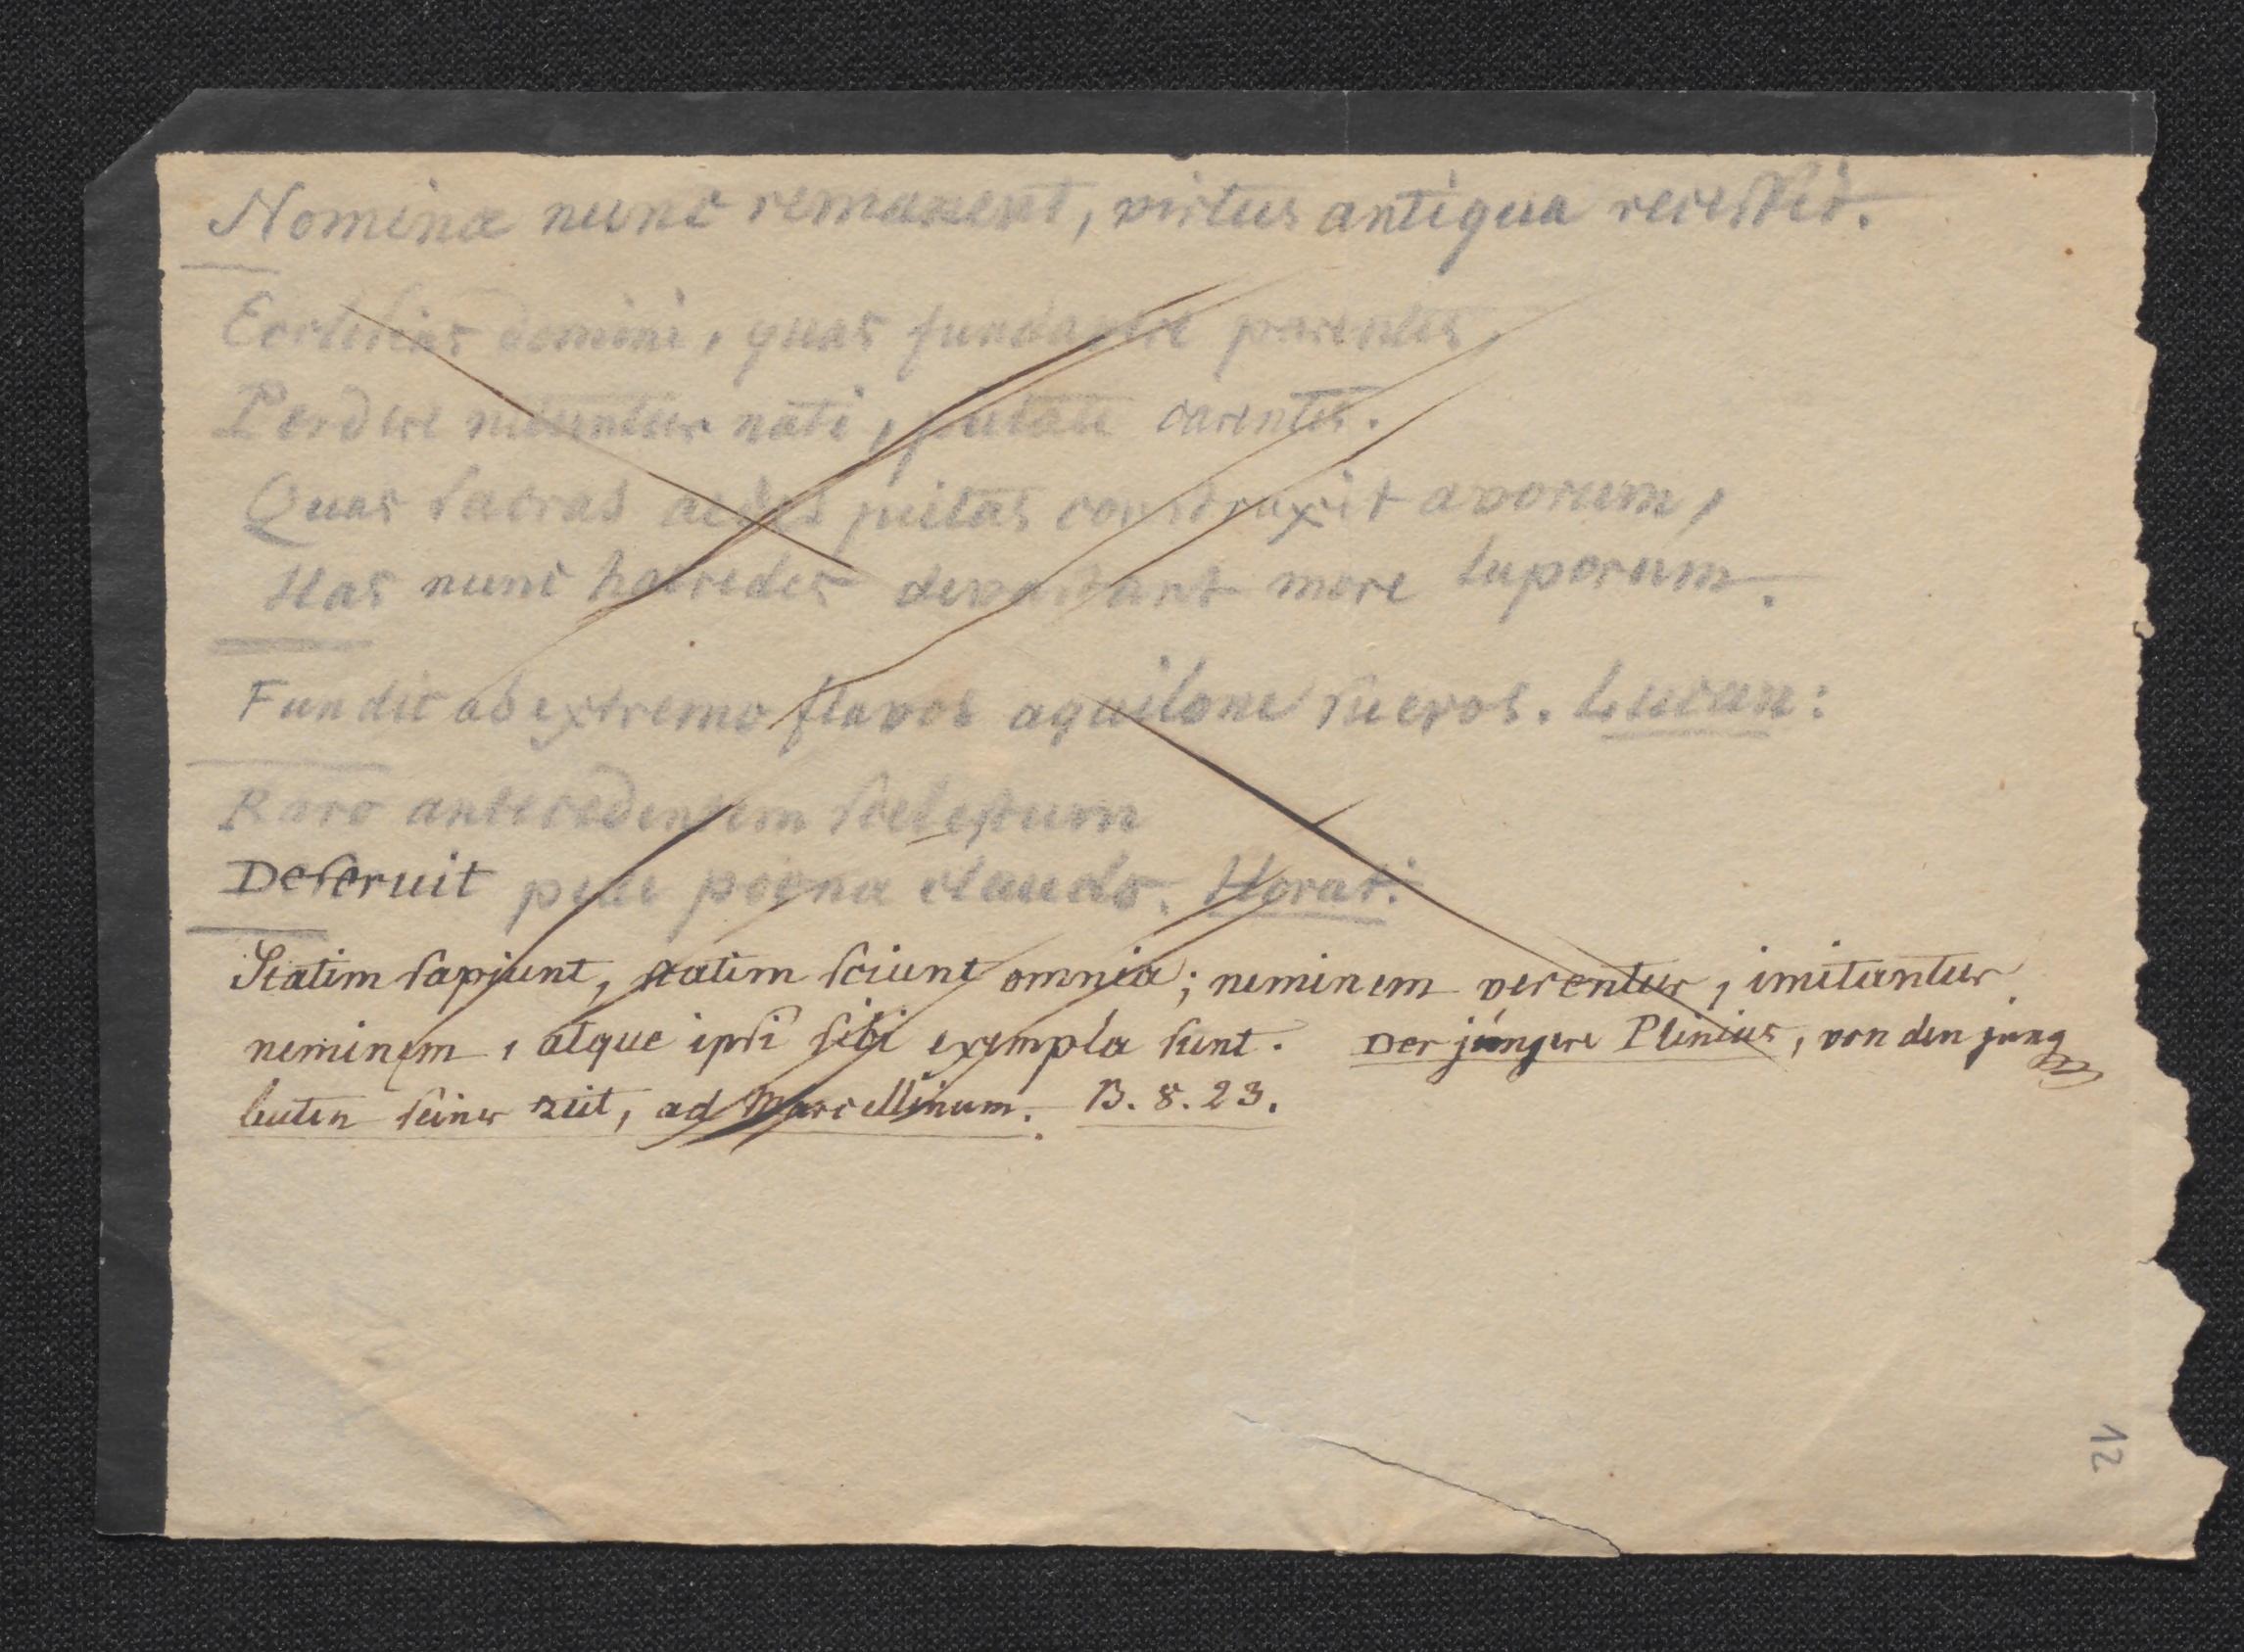 Nomina nunc remanent, virtus antiqua recessit.
Ecclesias domini, quas fundavere parentes,
Perdere nituntur nati, pietate carentes.
Quas sacras aedes pietas construxit avorum,
Has nunc haeredes devastant more luporum.
Fundit ab extremo flavos aquilone suevos. Lucan:
Raro antecedentem scelestum
Deseruit pede poena claudo. Horat:
Statim sapiunt, statim sciunt omnia; neminem verentur, imitantur
neminem, atque ipsi sibi exempla sunt. Der jüngere Plinius, von den jung
leuten seiner zeit, ad Marcellinum. B. 8. 23.
12